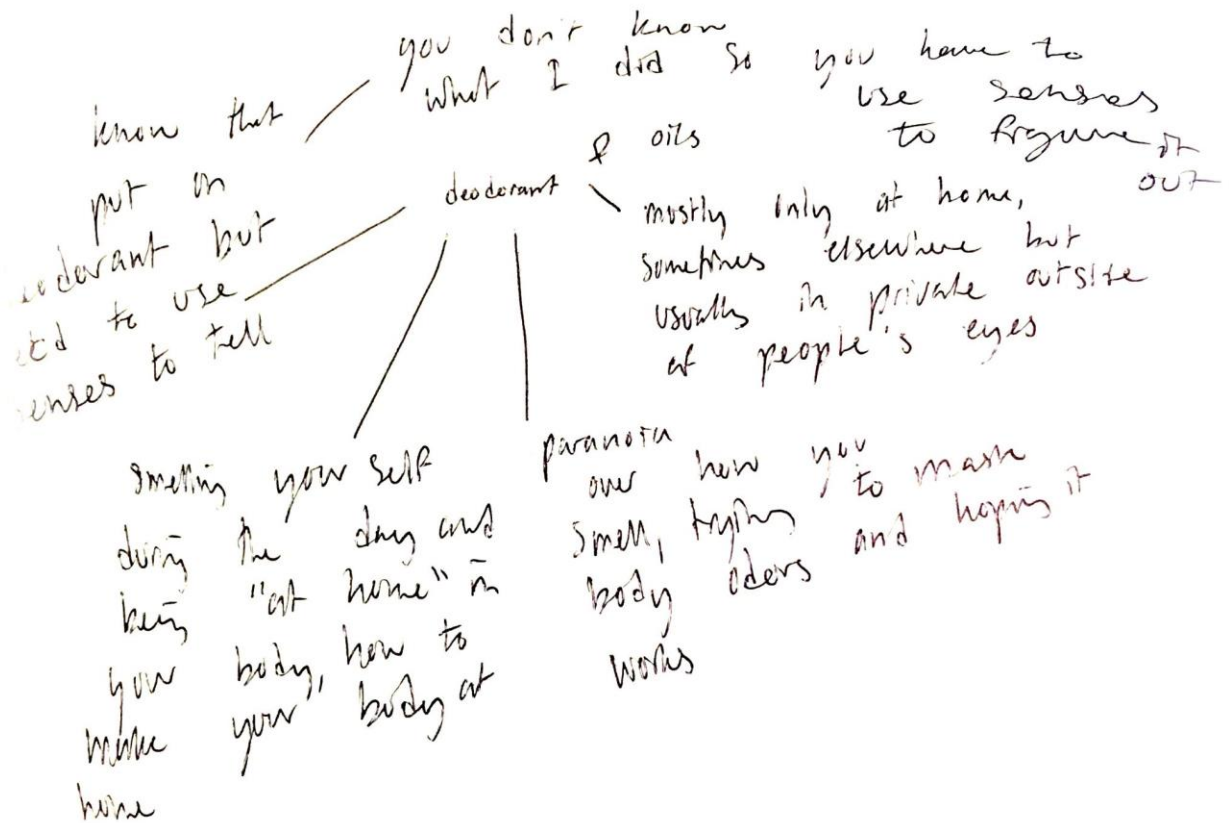 you don't know
what I did so you have to
use senses
to figure it
out
know that
put on
deodorant but
to use
senses to tell
deodorant
& oils
mostly only at home,
sometimes elsewhere but
usually in private outsite
of people's eyes
smelling your self
during the day and
being "at home" in
your body, how to
make your body at
home
paranoia
over how you
smell, trying to mask
body oders and hoping it
works